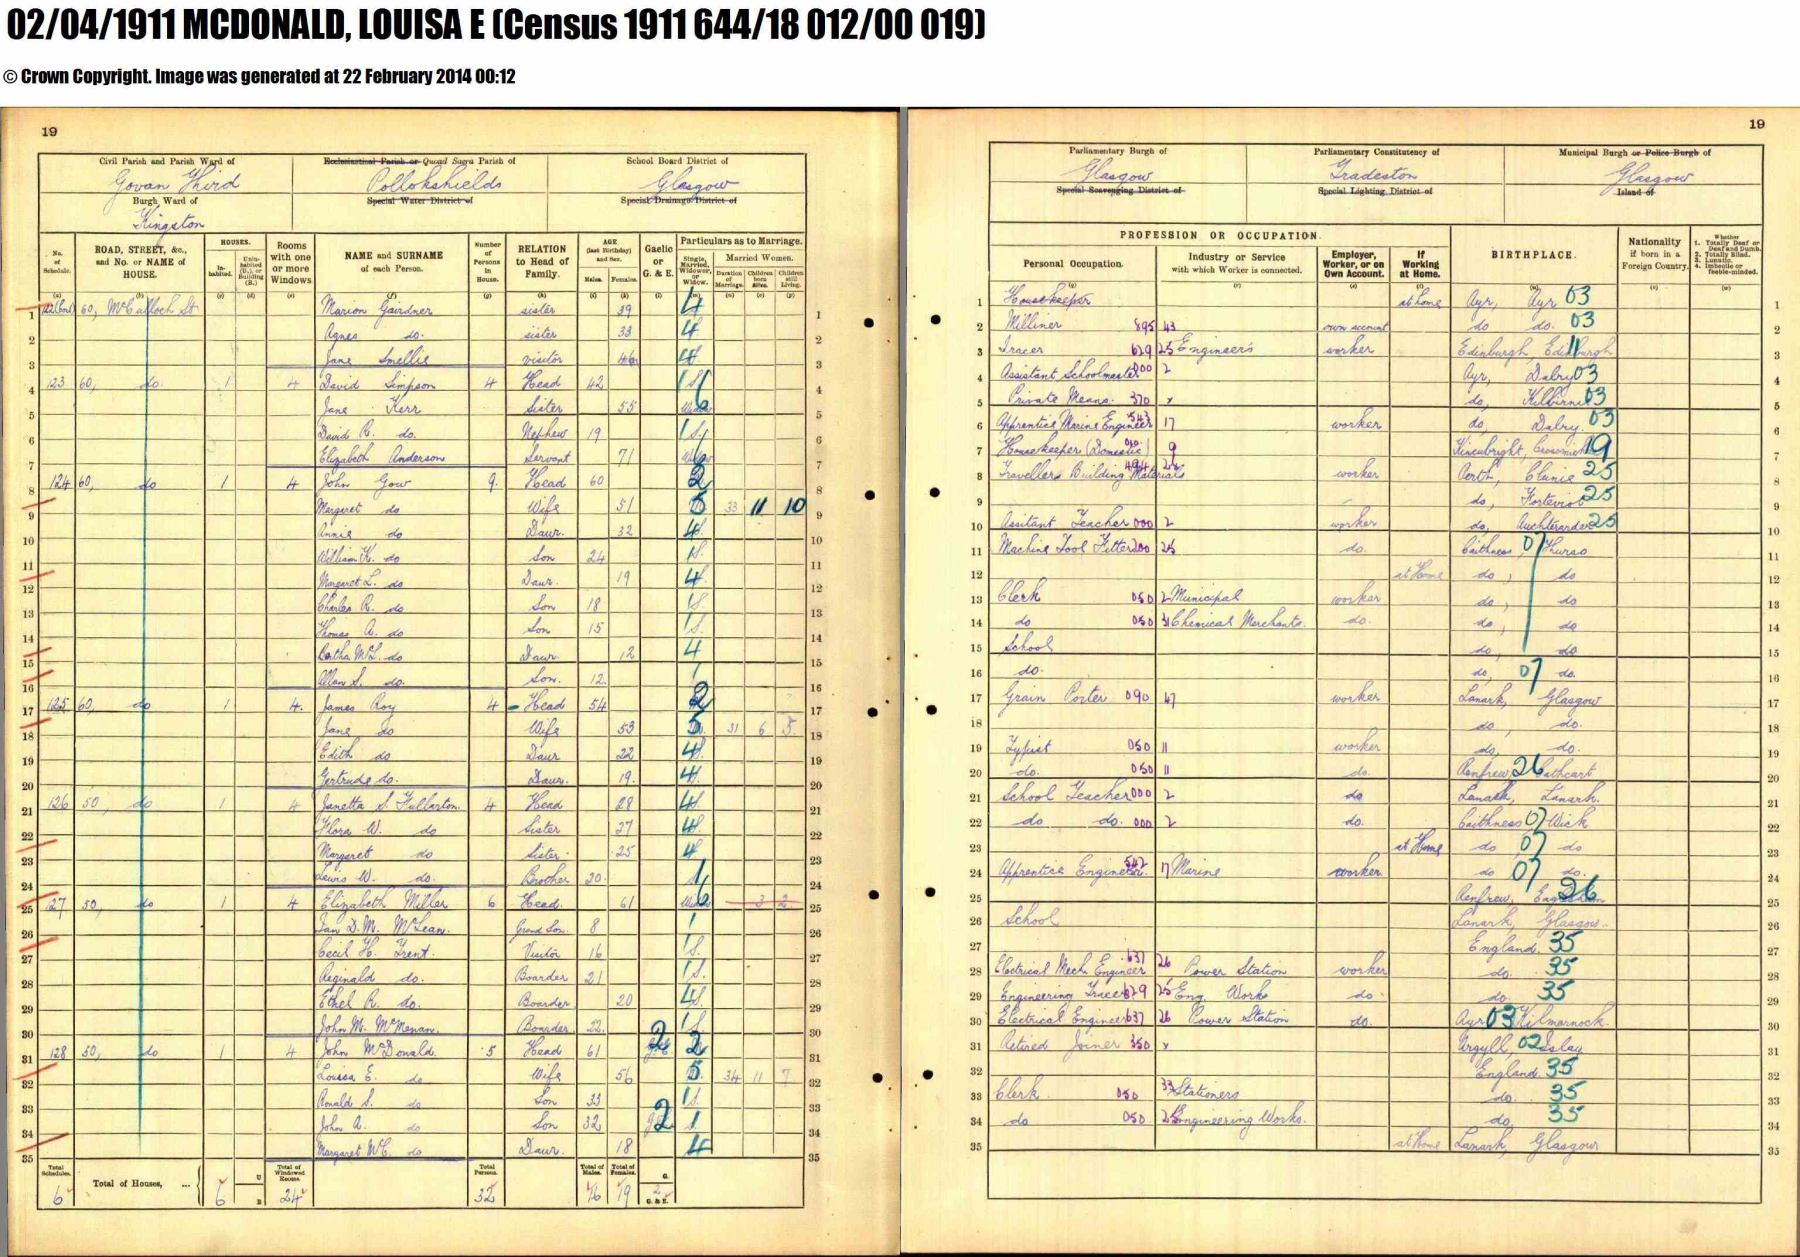 02/04/1911 MCDONALD, LOUISA E (Census 1911 644/18 012/00 019)
© Crown Copyright. Image was generated at 22 February 2014 00:12
19
Civil Parish and Parish Ward of
Govan Third
Burgh Ward of
Kingston
Ecclesiastical Parish or Quoad Sacra Parish of
Pollokshields
Special Water District of
School Board District of
Glasgow
Special Drainage District of
No. of Schedule. ROAD, STREET, &c., and No. or NAME of HOUSE. HOUSES. Inhabited. Uninhabited (U.), or Building (B.) Rooms with one or more Windows NAME and SURNAME of each Person. Number of Persons in House. RELATION to Head of Family. AGE (last Birthday) and Sex. Males. Females. Gaelic or G. & E. Particulars as to Marriage. Single, Married, Widower, or Widow. Married Women. Duration of Marriage. Children born Alive. Children still Living.
1 60, McCulloch St Marion Gairdner sister 39 4 1
2 Agnes do. sister 33 4 2
3 Jane Smellie visitor 46 4 3
4 123 60, do 1 4 David Simpson 4 Head 42 1 S. 4
5 Jane Kerr Sister 55 6 5
6 David R. do. Nephew 19 1 S. 6
7 Elizabeth Anderson Servant 71 6 7
8 124 60, do 1 4 John Gow 9. Head 60 2 8
9 Margaret do Wife 51 5 33 11 10 9
10 Annie do Daur. 32 4 10
11 William K. do Son 24 1 S. 11
12 Margaret L. do Daur. 19 4 12
13 Charles R. do Son 18 1 S. 13
14 Thomas A. do Son 15 1 S. 14
15 McL. do Daur. 12 4 15
16 Allan S. do. Son. 12. 1 16
17 125 60, do 1 4. James Roy 4 Head 54 2 17
18 Jane do Wife 53 5 31 6 18
19 Edith do Daur 22 4 19
20 Gertrude do. Daur. 19. 4 20
21 126 50, do 1 4 Janetta S. Fullarton. 4 Head 28 4 21
22 Flora W. do Sister 27 4 22
23 Margaret do Sister 25 4 23
24 Lewis W. do. Brother 20. 1 24
25 127 50, do 1 4 Elizabeth Miller 6 Head. 61 6 3 2 25
26 Ian D. M. McLean. Grand Son. 8 1 26
27 Cecil H. Trent. Visitor 16 1 S. 27
28 Reginald do. Boarder 21 1 S. 28
29 Ethel R. do. Boarder 20 4 S. 29
30 John M. Boarder 22. 1 S. 30
31 128 50, do 1 4 John McDonald. 5 Head 61 2 2 31
32 Louisa E. do Wife 56 5 34 11 7 32
33 Ronald S. do Son 33 1 S. 33
34 John A. do Son 32 2 1 34
35 Margaret do Daur. 18 4 35
Total Schedules. 6 Total of Houses, ... 6 U B Total of Windowed Rooms. 24 Total Persons. 32 Total of Males. 16 Total of Females. 19 G. G. & E. 2
19
Parliamentary Burgh of
Glasgow
Special Scavenging District of
Parliamentary Constituency of
Tradeston
Special Lighting District of
Municipal Burgh or Police Burgh of
Glasgow
Island of
PROFESSION OR OCCUPATION. Personal Occupation. Industry or Service with which Worker is connected. Employer, Worker, or on Own Account. If Working at Home. BIRTHPLACE. Nationality if born in a Foreign Country. Whether 1. Totally Deaf or Deaf and Dumb. 2. Totally Blind. 3. Lunatic. 4. Imbecile or feeble-minded.
1 Housekeeper at home Ayr, Ayr 03 1
2 Milliner 895 43 own account do do. 03 2
3 Tracer 629 25 Engineers worker Edinburgh, Edinburgh 11 3
4 Assistant Schoolmaster 000 2 Ayr, Dalry 03 4
5 Private Means. 370 x do, Kilbirnie 03 5
6 Apprentice Marine Engineer 543 17 worker do, Dalry. 03 6
7 Housekeeper (Domestic) 9 19 7
8 Travellers Building Materials worker Perth, Clunie 25 8
9 do, Forteviot 25 9
10 Assitant Teacher 000 2 worker do, Auchterarder 25 10
11 Machine Tool Fitter 200 25 do. Caithness 07 Thurso 11
12 at Home do, do 12
13 Clerk 050 2 Municipal worker do, do 13
14 do 050 31 Chemical Merchants. do. do, do 14
15 School do, do 15
16 do. do. 07 do. 16
17 Grain Porter 090 47 worker Lanark, Glasgow 17
18 do, do. 18
19 Typist 050 11 worker do, do. 19
20 do. 050 11 do. Renfrew, 26 Cathcart 20
21 School Teacher 000 2 do Lanark, Lanark. 21
22 do do. 000 2 do. Caithness 07 Wick 22
23 at Home do 07 do 23
24 Apprentice Engineer. 542 17 Marine worker do 07 do. 24
25 Renfrew, 26 25
26 School Lanark, Glasgow. 26
27 England. 35 27
28 Electrical Mech. Engineer 637 26 Power Station worker do. 35 28
29 Engineering Tracer 629 25 Eng. Works do. do. 35 29
30 Electrical Engineer 637 26 Power Station do. Ayr 03 Kilmarnock. 30
31 Retired Joiner 350 x Argyll, 02 Islay 31
32 England. 35 32
33 Clerk. 050 33 Stationers do. 35 33
34 do 050 25 Engineering Works. do, 35 34
35 at Home Lanark, Glasgow 35